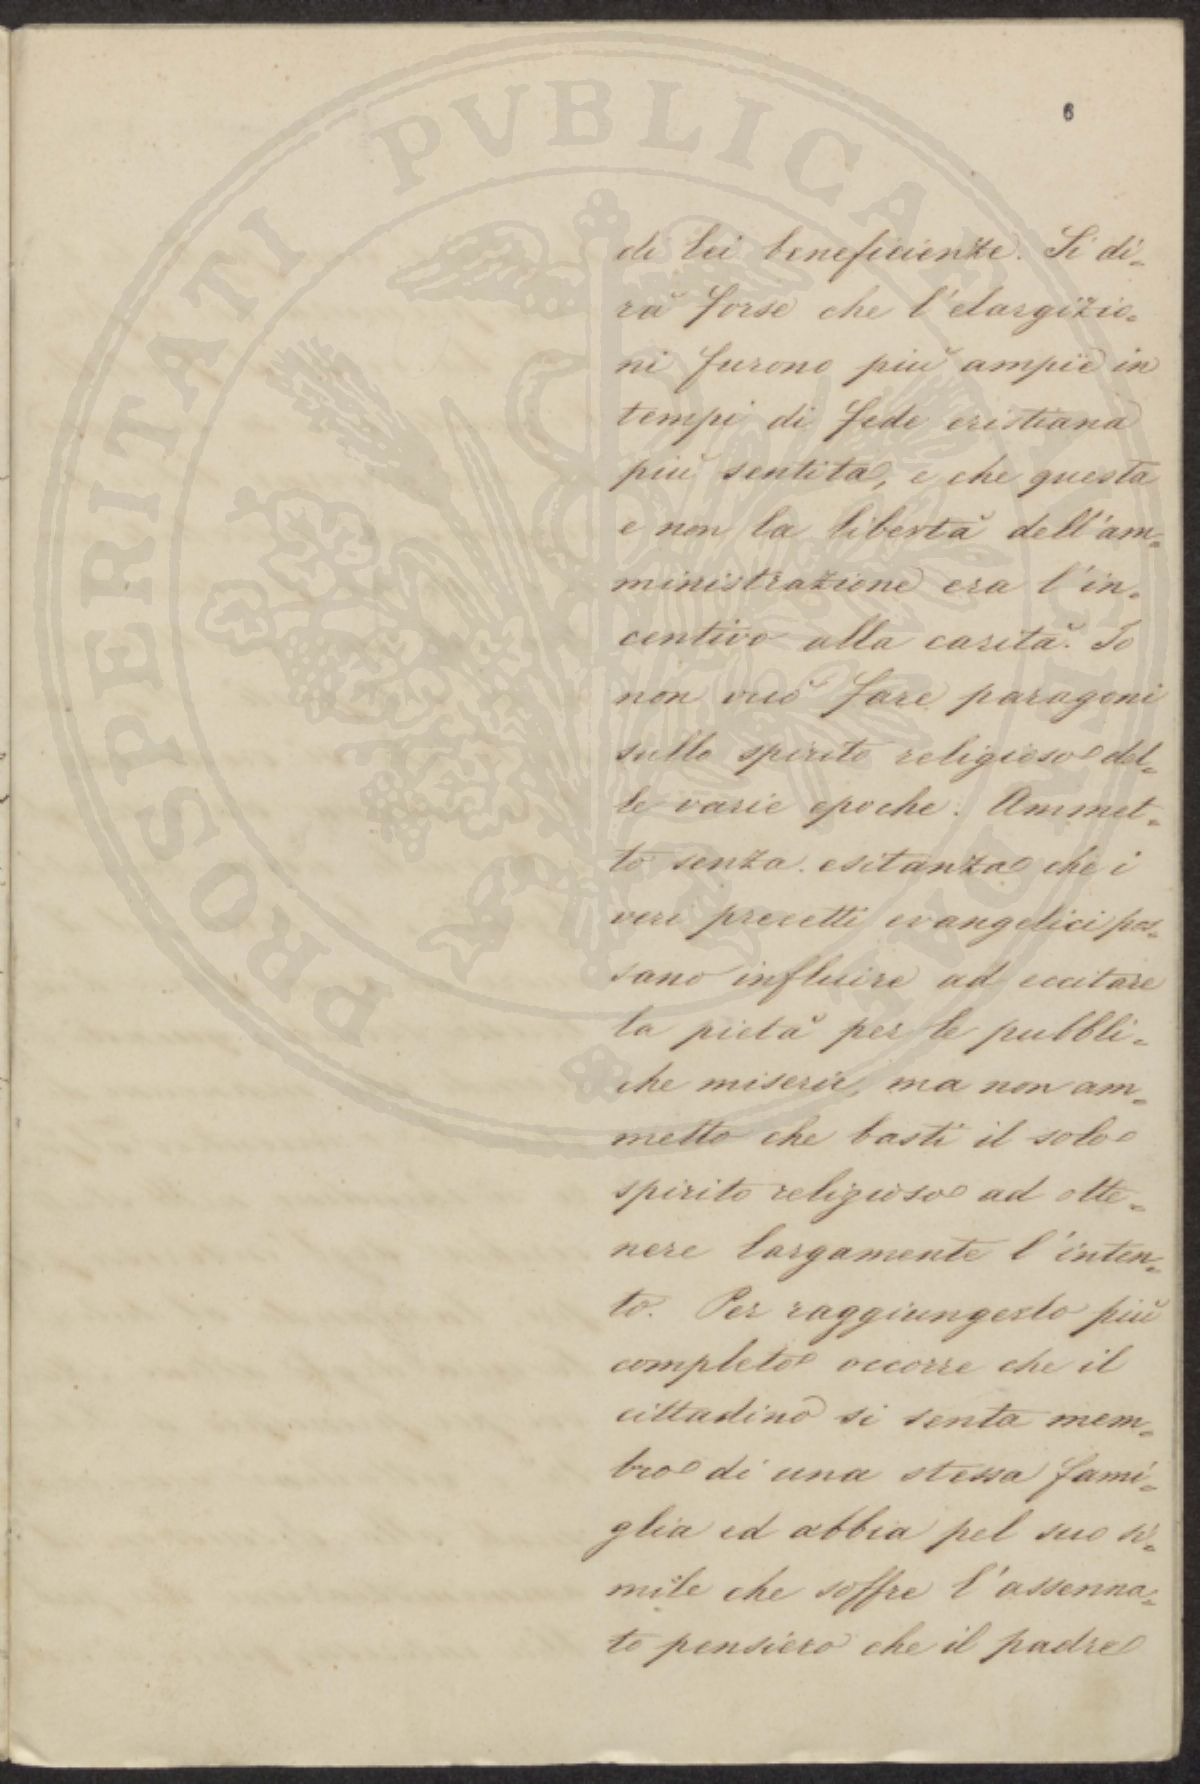 PROSPERITATI PVBLICAE
6
di lei beneficienze. Si di=
rà forse che l'elargizio=
ni furono più ampie in
tempi di fede cristiana
più sentita, e che questa
e non la libertà dell'am=
ministrazione era l'in=
centivo alla carità. Io
non vuò fare paragoni
sullo spirito religioso del=
le varie epoche. Ammet=
to senza esitanza che i
veri precetti evangelici pos=
sano influire ad eccitare
la pietà per le pubbli=
che miserie, ma non am=
metto che basti il solo
spirito religioso ad otte=
nere largamente l'inten=
to. Per raggiungerlo più
completo occorre che il
cittadino si senta mem=
bro di una stessa fami=
glia ed abbia pel suo si=
mile che soffre l'assenna=
to pensiero che il padre